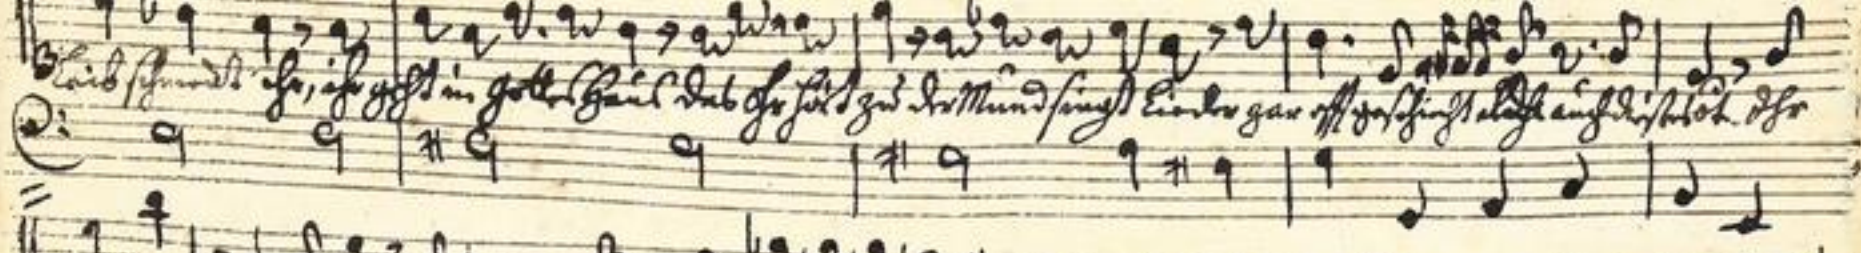 Leib schmückt ihr, ihr geht in Gottes Hauß das Ohr hört zu der Mund singt Lieder gar offt geschicht auch dieses Ihr